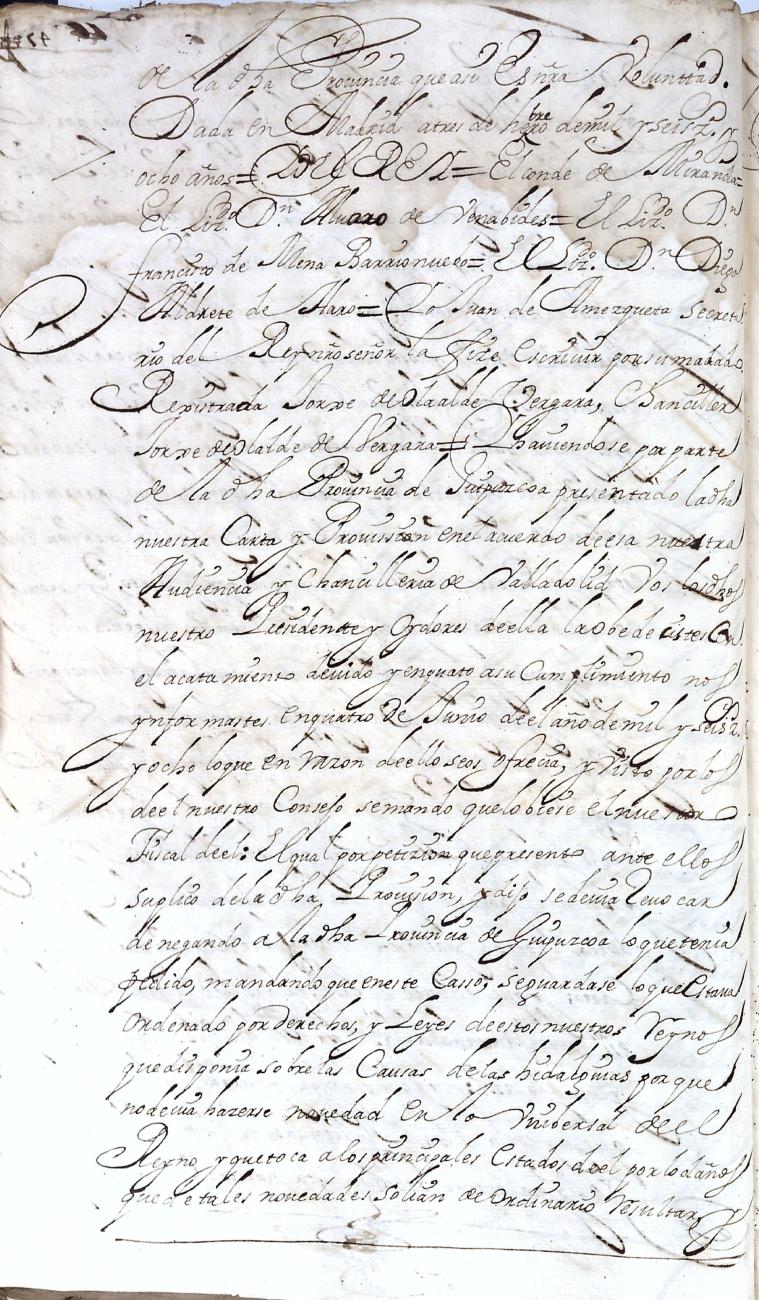 de la dha Provincia que asi Es ñra Voluntad.
Dada en Madrid a tres de hebrero de mil y seisz. y
ocho años = YO EL REY = El conde de Miranda =
El Lizdo. Dn. Alvaro de Venabides = El Lizdo. Dn
francisco de Mena Barrionuebo = El Lizdo. Dn Diego
Aldrete de Haro = Yo Juan de Amezqueta Secreta
rio del Rey nro señor la fize escrivir por su mandado.
Registrada Jorxe de olaalde Vergara, Chanciller
Jorxe de olalde de Vergara = Y haviendose por parte
de la dha Provincia de Guipuzcoa presentado la dha
nuestra Carta y Provission en el acuerdo de esa nuestra
Audiencia y Chancilleria de Valladolid Vos los dhos
nuestro Presidente y Oydores de ella la obedecistes Con
el acatamiento devido y en quato a su Cumplimiento nos
ynformastes en quatro De Junio de el año de mil y seisz.
y ocho lo que en razon de ello se os ofrecia, y Visto por los
de el nuestro Consejo se mando que lo biese el nuestro
Fiscal de el: El qual por petizion que presento ante ellos
suplico de la dha Provision, y dijo se devia Revocar
denegando a la dha Provincia de Guipuzcoa lo que tenia
pedido, mandando que en este Casso, se guardase lo que Estava
ordenado por derechos, y Leyes de estos nuestros Reynos
que disponia sobre las Causas de las hidalguias por que
no devia hazerse novedad en lo Unibersal de el
Reyno y que toca a los principales estados de el por lo daños
que de tales novedades solian de ordinario resultar, y